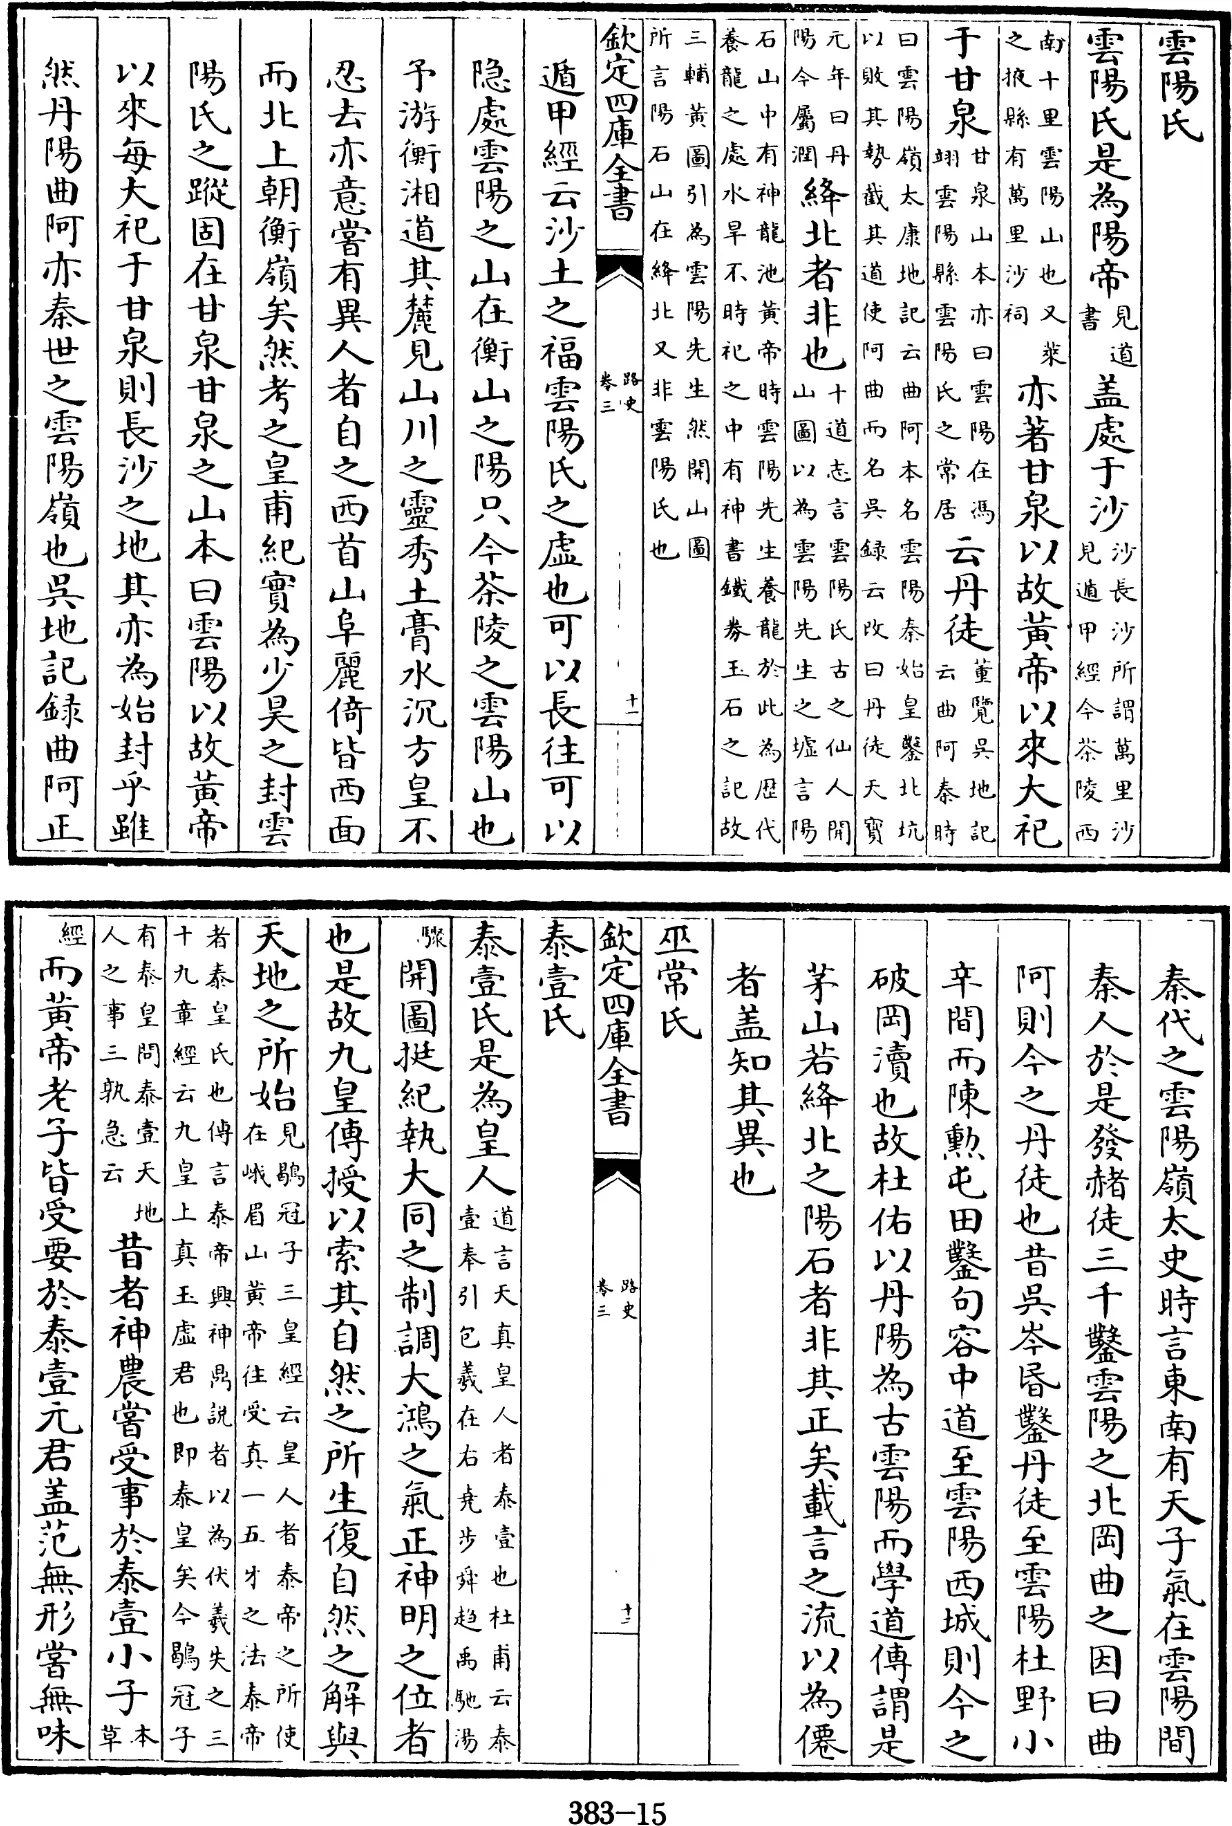 雲陽氏
雲陽氏是為陽帝見道書盖處于沙沙長沙所謂萬里沙見遁甲經今茶陵西
南十里雲陽山也又萊之掖縣有萬里沙祠亦著甘泉以故黃帝以來大祀
于甘泉甘泉山本亦曰雲陽在馮翊雲陽縣雲陽氏之常居云丹徒董覽吳地記云曲阿秦時
曰雲陽嶺太康地記云曲阿本名雲陽秦始皇鑿北坑以敗其勢截其道使阿曲而名吳録云改曰丹徒天寳
元年曰丹陽今屬潤絳北者非也十道志言雲陽氏古之仙人開山圖以為雲陽先生之墟言陽
石山中有神龍池黃帝時雲陽先生養龍於此為歴代養龍之處水旱不時祀之中有神書鐵券玉石之記故
三輔黃圖引為雲陽先生然開山圖所言陽石山在絳北又非雲陽氏也
欽定四庫全書 路史卷三 十一
遁甲經云沙土之福雲陽氏之虛也可以長往可以
隐處雲陽之山在衡山之陽只今茶陵之雲陽山也
予游衡湘道其麓見山川之靈秀土膏水沉方皇不
忍去亦意嘗有異人者自之西首山阜麗倚皆西面
而北上朝衡嶺矣然考之皇甫紀實為少昊之封雲
陽氏之蹤固在甘泉甘泉之山本曰雲陽以故黃帝
以來每大祀于甘泉則長沙之地其亦為始封乎雖
然丹陽曲阿亦秦世之雲陽嶺也吳地記録曲阿正
秦代之雲陽嶺太史時言東南有天子氣在雲陽間
秦人於是發赭徒三千鑿雲陽之北岡曲之因曰曲
阿則今之丹徒也昔吳岑昬鑿丹徒至雲陽杜野小
辛間而陳勲屯田鑿句容中道至雲陽西城則今之
破岡瀆也故杜佑以丹陽為古雲陽而學道傳謂是
茅山若絳北之陽石者非其正矣載言之流以為僊
者盖知其異也
巫常氏
欽定四庫全書 路史卷三 十二
泰壹氏
泰壹氏是為皇人道言天真皇人者泰壹也杜甫云泰壹奉引包羲在右堯步舜趋禹馳湯
驟開圖挺紀執大同之制調大鴻之氣正神明之位者
也是故九皇傳授以索其自然之所生復自然之解與
天地之所始見鶡冠子三皇經云皇人者泰帝之所使在峨眉山黃帝往受真一五牙之法泰帝
者泰皇氏也傳言泰帝興神鼎說者以為伏羲失之三十九章經云九皇上真玉虛君也即泰皇矣今鶡冠子
有泰皇問泰壹天地人之事三孰急云昔者神農嘗受事於泰壹小子本草
經而黃帝老子皆受要於泰壹元君盖范無形嘗無味
383-15